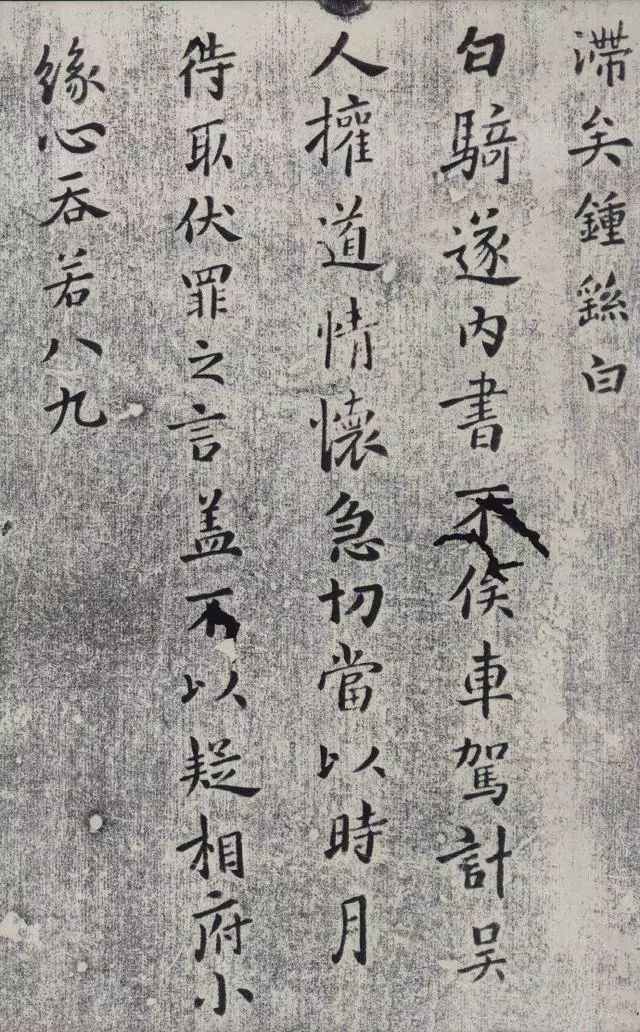 滞矣鍾繇白
白騎遂內書不俟車駕計吴
人權道情懷急切當以時月
待取伏罪之言盖不以疑相府小
緣心吞若八九